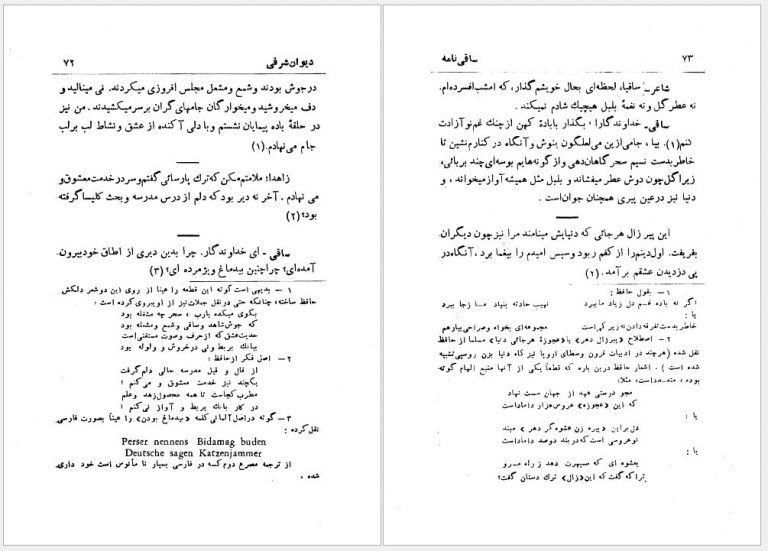 دیوان شرقی ۷۲
درجوش بودند وشمع ومشعل مجلس افروزی میکردند. نی مینالید و
دف میخروشید ومیخوارگان جامهای گران برسرمیکشیدند. من نیز
در حلقهٔ باده پیمایان نشستم وبا دلی آکنده از عشق و نشاط لب برلب
جام می نهادم.(۱)
زاهدا؛ ملامتم مکن که ترك پارسائی گفتم وسر در خدمت معشوق و
می نهادم. آخر نه دیر بود که دلم از درس مدرسه و بحث کلیسا گرفته
بود؟(۲)
ساقی - ای خداوندگار. چرا بدین دیری از اطاق خودبیرون
آمده‌ای؟ چرا چنین بیدماغ و پژمرده ای؟(۳)
۱ - بدیهی است گوته این قطعه را عینا از روی این دوشعر دلکش
حافظ ساخته، چنانکه حتی در نقل جملات نیز از او پیروی کرده است:
بکوی میکده یارب، سحر چه مشغله بود
که جوش شاهد وساقی وشمع ومشعله بود
حدیث عشق که از حرف وصوت مستغنی است
بنالهٔ بربط ونی درخروش و ولوله بود
۲ - اصل فکر ازحافظ:
از قال و قیل مدرسه حالی دلم گرفت
یکچند نیز خدمت معشوق و می کنم!
مطرب کجاست تا همه محصول زهد وعلم
در کار بانك بربط و آواز نی کنم!
۳- گوته دراصل آلمانی کلمه «بیدماغ بودن» را عینا بصورت فارسی
نقل کرده:
Perser nennens Bidamag buden
Deutsche sagen Katzenjammer
از ترجمه مصرع دوم که در فارسی بسیار نا مأنوس است خود داری
شده.
ساقی نامه ۷۳
شاعر - ساقیا، لحظه‌ای بحال خویشم گذار، که امشب افسرده‌ام.
نه عطر گل و نه نغمهٔ بلبل هیچیك شادم نمیکند.
ساقی - خداوندگارا، بگذار با بادهٔ کهن از چنك غم نو آزادت
کنم(۱). بیا، جامی ازین می لعلگون بنوش و آنگاه در کنارم نشین تا
خاطر بدست نسیم سحرگاهان دهی و از گونه‌هایم بوسه‌ای چند بربائی،
زیرا گل چون دوش عطر میفشاند و بلبل مثل همیشه آواز میخواند، و
دنیا نیز درعین پیری همچنان جوان است.
این پیر زال هرجائی که دنیایش مینامند مرا نیز چون دیگران
بفریفت. اول دینم را از کفم ربود وسپس امیدم را بیغما برد، آنگاه در
پی دزدیدن عشقم بر آمد.(۲)
۱ - بقول حافظ:
اگر نه باده غم دل زیاد ما ببرد نهیب حادثه بنیاد ما ز جا ببرد
یا:
خاطر بدست تفرقه دادن نه زیرکی است مجموعه‌ای بخواه وصراحی بیار هم
۲ - اصطلاح «پیرزال دهر» یا «عجوزهٔ هرجائی دنیا» مسلما از حافظ
نقل شده (هرچند در ادبیات قرون وسطای اروپا نیز گاه دنیا بزن روسپی تشبیه
شده است). اشعار حافظ درین باره که قطعاً یکی از آنها منبع الهام گوته
بوده، متعدد است، مثلا:
مجو درستی عهد از جهان سست نهاد
که این «عجوزه» عروس هزار داماد است
یا:
دل براین «پیره زن عشوه گر دهر» مبند
نوعروسی است که در بند دوصد داماد است
یا:
بعشوه ای که سپهرت دهد ز راه مرو
ترا که گفت که این «زال» ترك دستان گفت؟